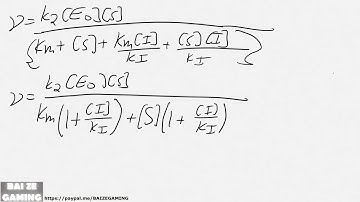 ν = k₂[E₀][S] / {Km + [S] + Km[I]/KI + [S][I]/KI}
ν = k₂[E₀][S] / Km(1 + [I]/KI) + [S](1 + [I]/KI)
BAI ZE
GAMING
https://paypal.me/BAIZEGAMING